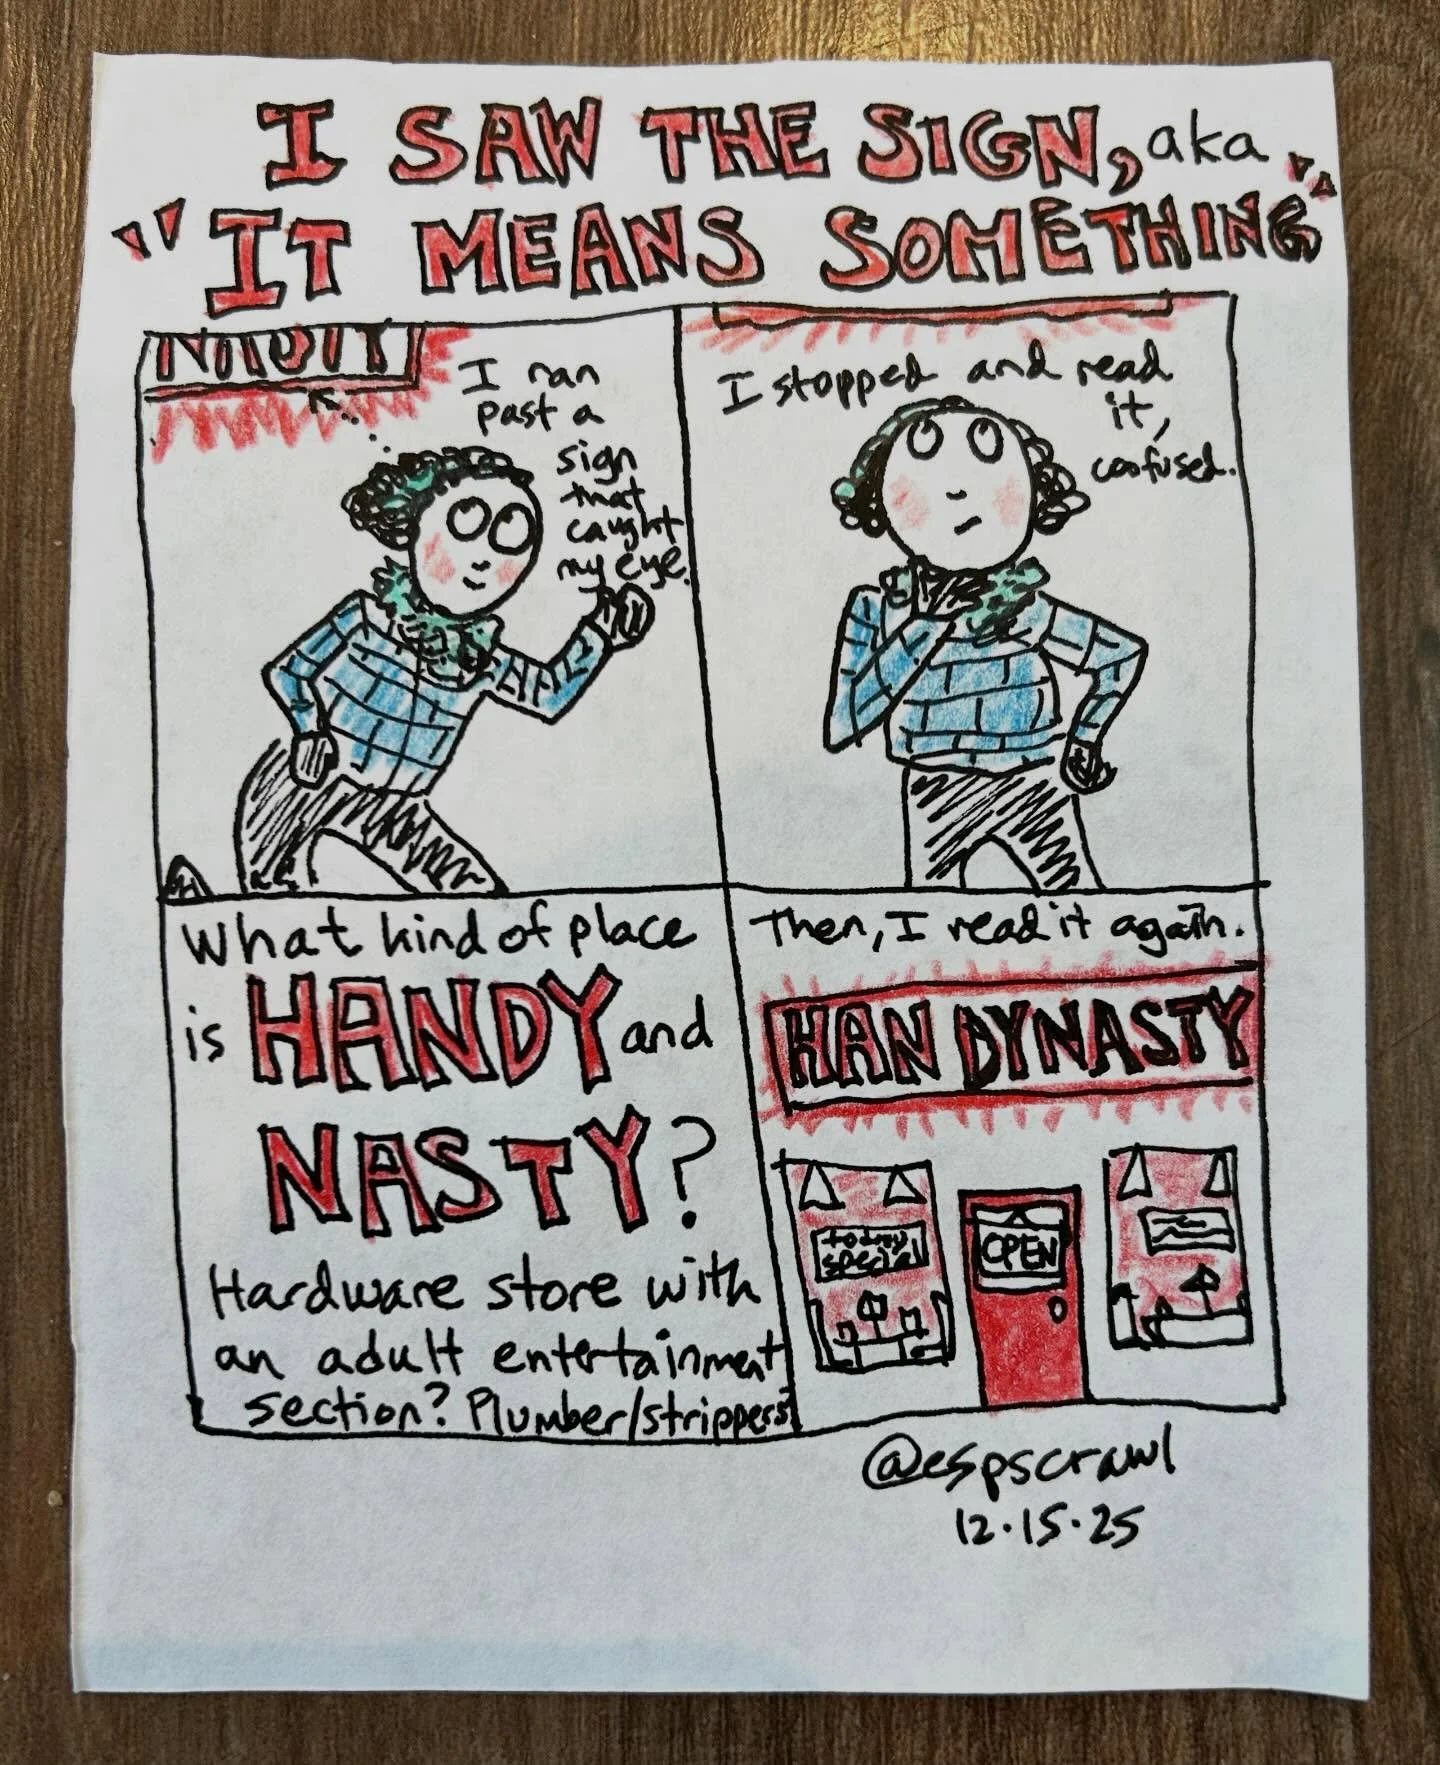 I SAW THE SIGN, aka
"IT MEANS SOMETHING"
I ran
past a
sign
that
caught
my eye.
I stopped and read
it,
confused.
What kind of place
is HANDY and
NASTY?
Hardware store with
an adult entertainment
section? Plumber/strippers?
Then, I read it again.
HAN DYNASTY
today
special
OPEN
@espscrawl
12.15.25